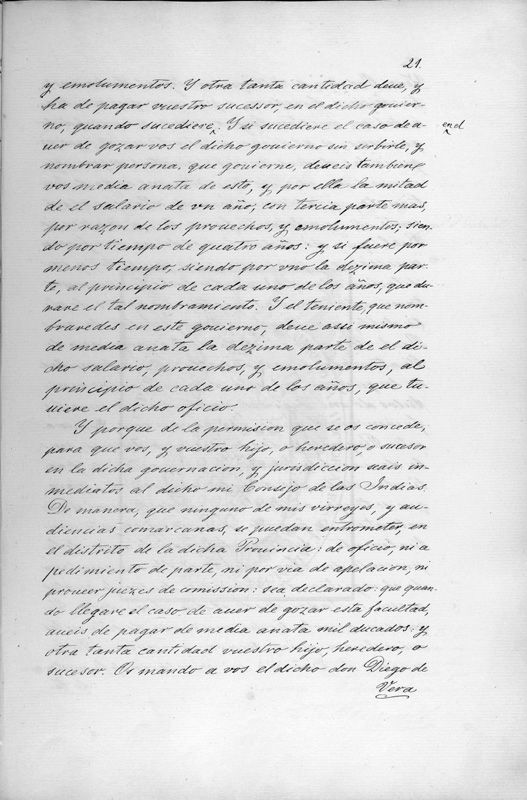 21.
y emolumentos. Y otra tanta cantidad deue, y
ha de pagar vuestro sucessor, en el dicho gouier-
no, quando sucediere^. Y si sucediere el caso de a- en el
uer de gozar vos el dicho gouierno sin serbirle, y
nombrar persona, que gouierne, deueis tambien
vos media anata de esto, y por ella la mitad
de el salario de vn año, con tercia parte mas,
por razon de los prouechos, y emolumentos; sien-
do por tiempo de quatro años: y si fuere por
menos tiempo, siendo por vno la dezima par-
te, al principio de cada uno de los años, que du-
rare el tal nombramiento. Y el teniente, que nom-
braredes en este gouierno, deue assi mismo
de media anata la dezima parte de el di-
cho salario, prouechos, y emolumentos, al
principio de cada uno de los años, que tu-
uiere el dicho oficio.
Y porque de la permision que se os concede,
para que vos, y vuestro hijo, o heredero, o sucesor
en la dicha gouernacion, y jurisdiccion seais in-
mediatos al dicho mi Consejo de las Indias.
De manera, que ninguno de mis virreyes, y au-
diencias comarcanas, se puedan entrometer, en
el distrito de la dicha Prouincia: de oficio, ni a
pedimiento de parte, ni por via de apelacion, ni
proueer juezes de comission: sea declarado: que quan-
do llegare el caso de auer de gozar esta facultad,
aueis de pagar de media anata mil ducados: y
otra tanta cantidad vuestro hijo, heredero, o
sucesor. Os mando a vos el dicho don Diego de
Vera